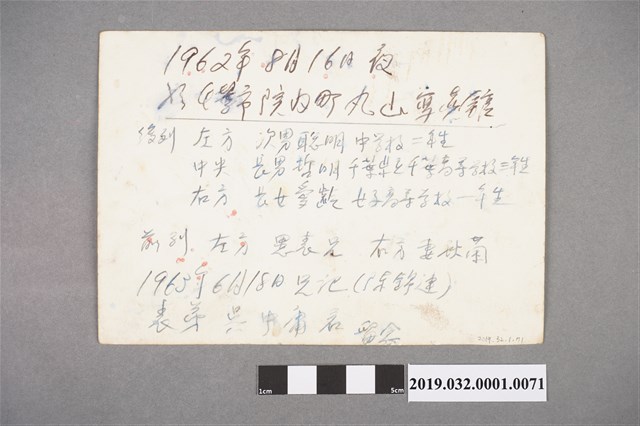 1962年8月16日夜
於千葉市院内町丸山寫真館
後列 左方 次男聡明 中学校二年生
中央 長男哲明 千葉県立千葉高等学校三年生
右方 長女愛齢 女子高等学校一年生
前列 左方 愚表兄 右方 妻
1963年6月18日兄記
表弟 呉 君 留念
2019.32.1.71
1cm 5cm
2019.032.0001.0071